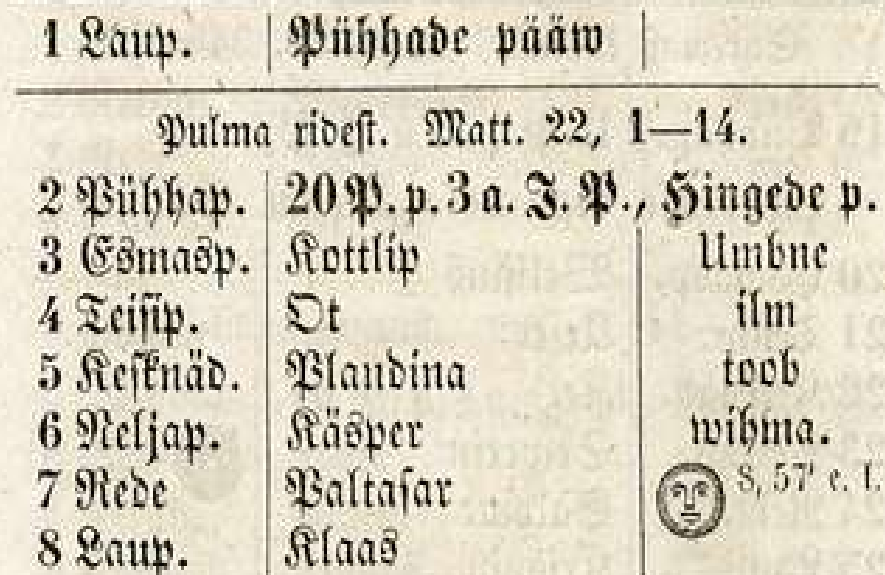 1 Laup. Pühhade pääw
Pulma ridest. Matt. 22, 1—14.
2 Pühhap. 20 P. p. 3 a. J. P., Hingede p.
3 Esmasp. Kottlip Umbne
4 Teisip. Ot ilm
5 Kesknäd. Plandina toob
6 Neljap. Käsper wihma.
7 Rede Paltasar 8, 57' e. l.
8 Laup. Klaas